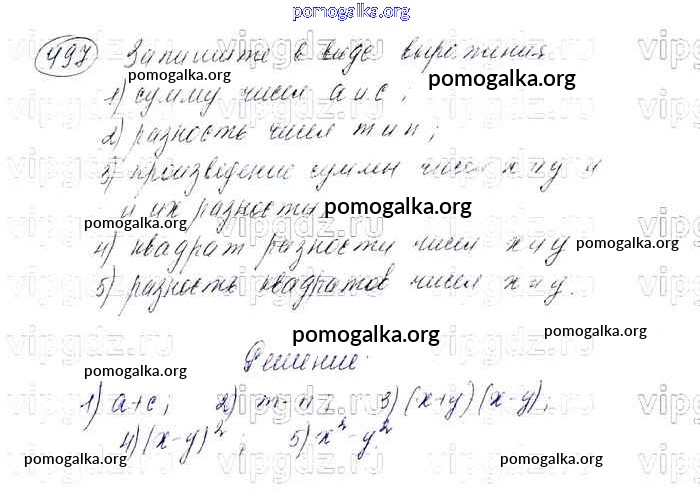 pomogalka.org
497 Запишите в виде выражения
pomogalka.org
pomogalka.org
1) сумму чисел а и с;
2) разность чисел m и n;
3) произведение суммы чисел х и у и
и их разности
pomogalka.org
pomogalka.org
4) квадрат разности чисел х и у
pomogalka.org
5) разность квадратов чисел х и у.
pomogalka.org
pomogalka.org
Решение.
pomogalka.org
1) a+c; 2) m-n; 3) (x+y)(x-y);
4) (x-y)²; 5) x²-y²
pomogalka.org
pomogalka.org